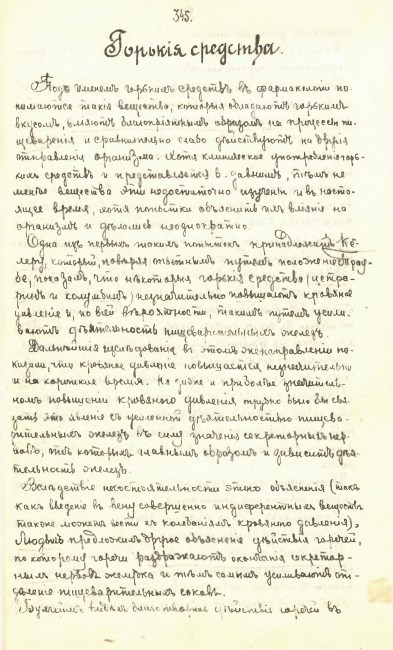 345.
Горькія средства.
Подъ именемъ горькихъ средствъ въ фармакологіи по-
нимаются такія вещества, которыя обладаютъ горькимъ
вкусомъ, вліяютъ благопріятнымъ образомъ на процессы пи-
щеваренія и сравнительно слабо дѣйствуютъ на другія
отправленія организма. Хотя клиническое употребленіе горь-
кихъ средствъ и представляется б. давнимъ, тѣмъ не
менѣе вещества эти недостаточно изучены и въ насто-
ящее время, хотя попытки объяснить ихъ вліяніе на
организмъ и дѣлались неоднократно.
Одна изъ первыхъ такихъ попытокъ принадлежитъ Кё-
леру, который, повѣряя опытнымъ путемъ положеніе Трау-
бе, показалъ, что нѣкоторыя горькія средства (цетра-
ринъ и колумбинъ) незначительно повышаютъ кровяное
давленіе и, по всей вѣроятности, такимъ путемъ усили-
ваютъ дѣятельность пищеварительныхъ железъ.
Дальнѣйшія изслѣдованія въ этомъ же направленіи по-
казали, что кровяное давленіе повышается незначительно
и на короткое время. Но даже и при болѣе значитель-
номъ повышеніи кровяного давленія трудно было бы свя-
зать это явленіе съ усиленной дѣятельностью пищева-
рительныхъ железъ въ силу значенія секреторныхъ нер-
вовъ, отъ которыхъ главнымъ образомъ и зависитъ дѣя-
тельность железъ.
Вслѣдствіе несостоятельности этихъ объясненій (такъ
какъ введеніе въ вену совершенно индиферентныхъ веществъ
также можетъ вести къ колебаніямъ кровяного давленія),
предложилъ другое объясненіе дѣйствія горечей,
по которому горечи раздражаютъ окончанія секретор-
ныхъ нервовъ желудка и тѣмъ самымъ усиливаютъ от-
дѣленіе пищеварительныхъ соковъ.
благотворное дѣйствіе горечей въ